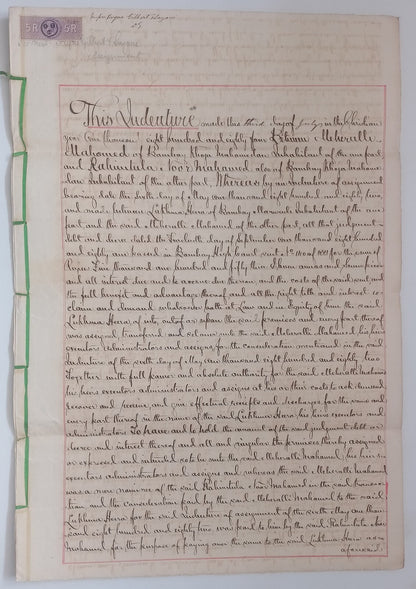 5R 5R
This Indenture made this third day of July in the Christian
year One thousand eight hundred and eighty four Between Meherally
Mahomed of Bombay Khoja Mahomedan Inhabitant of the one part
and Rahimtula Noor Mahomed also of Bombay Khoja Mahome-
dan Inhabitant of the other part, Whereas by an indenture of assignment
bearing date the sixth day of May one thousand eight hundred and eighty two
and made between Lukhma Hera of Bombay Marwadi Inhabitant of the one
part, and the said Meherally Mahomed of the other part, all that judgment-
debt and decree dated the twentieth day of September one thousand eight hundred
and eighty one passed in Bombay High Court suit No of 1881 for the sum of
Rupees Five thousand one hundred and fifty three fifteen annas and
and all interest due and to accrue due thereon and the costs of the said suit and
the full benefit and advantage thereof and all the right title and interest
claim and demand whatsoever both at Law and in Equity of him the said
Lukhma Hera of into out of or upon the said premises and every part thereof
was assigned transferred and set over unto the said Meherally Mahomed his heirs
executors administrators and assigns for the consideration mentioned in the said
Indenture of the sixth day of May one thousand eight hundred and eighty two
Together with full power and absolute authority for the said Meherally Mahomed
his heirs executors administrators and assigns at his or their costs to ask demand
recover and receive and give effectual receipts and discharges for the same and
every part thereof in the name of the said Lukhma Hera his heirs executors and
administrators To have and to hold the amount of the said judgment debt or
decree and interest thereof and all and singular the premises thereby assigned
or expressed and intended so to be unto the said Meherally Mahomed his heirs ex-
ecutors administrators and assigns and whereas the said Meherally Mahomed
was a mere nominee of the said Rahimtula Noor Mahomed in the said transac-
tion and the consideration paid by the said Meherally Mahomed to the said
Lukhma Hera for the said Indenture of assignment of the sixth May one thou-
sand eight hundred and eighty two was paid to him by the said Rahimtula Noor
Mahomed for the purpose of paying over the same to the said Lukhma Hera as
aforesaid